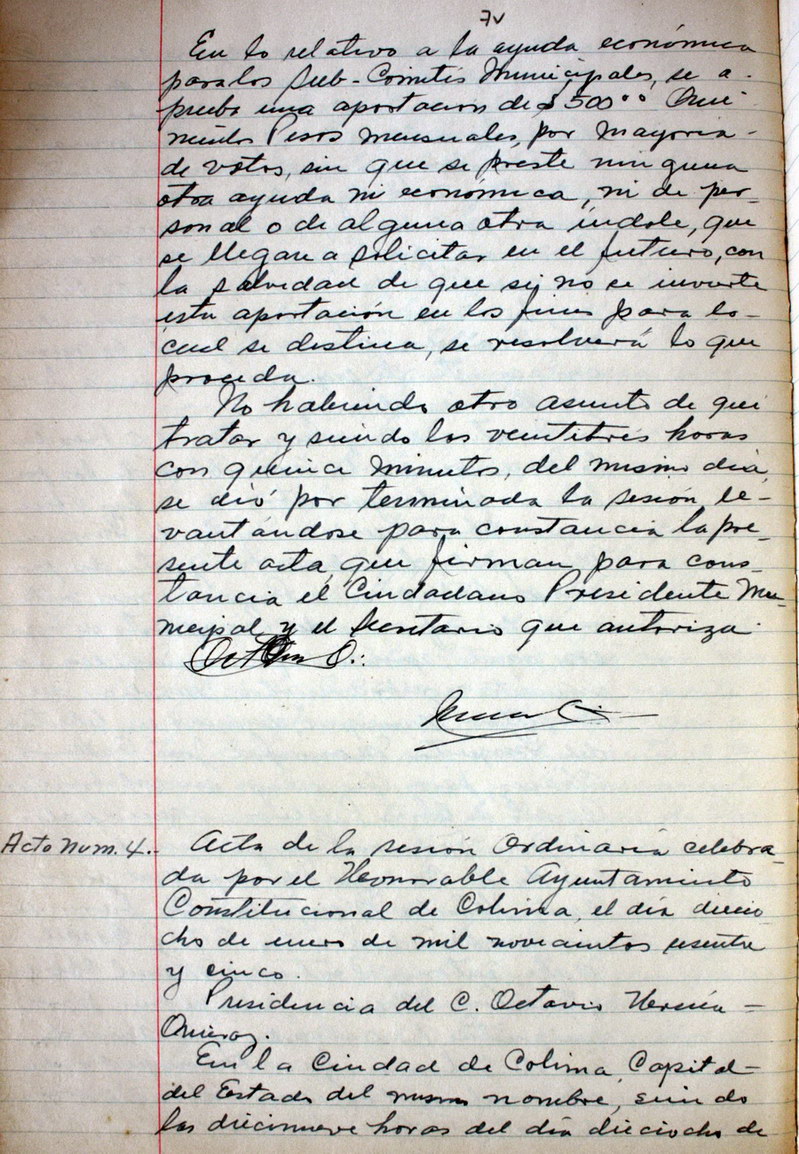 7v
En lo relativo a la ayuda económica
para los Sub-Comités Municipales, se a-
prueba una aportación de $500.00 Qui-
nientos Pesos mensuales, por mayoría-
de votos, sin que se preste ninguna
otra ayuda ni económica, ni de per-
sonal o de alguna otra índole, que
se llegan a solicitar en el futuro, con
la salvedad de que si no se invierte
esta aportación en los fines para lo-
cual se destina, se resolverá lo que
proceda.
No habiendo otro asunto de que
tratar y siendo las veintitres horas
con quince minutos, del mismo día,
se dió por terminada la sesión le-
vantándose para constancia la pre-
sente acta, que firman para cons-
tancia el Ciudadano Presidente Mu-
nicipal y el Secretario que autoriza.
Acta Num. 4.-
Acta de la sesión Ordinaria celebra-
da por el Honorable Ayuntamiento
Constitucional de Colima, el día diecio-
cho de enero de mil novecientos sesenta
y cinco.
Presidencia del C. Octavio
En la Ciudad de Colima, Capital-
del Estado del mismo nombre, siendo
las diecinueve horas del día dieciocho de